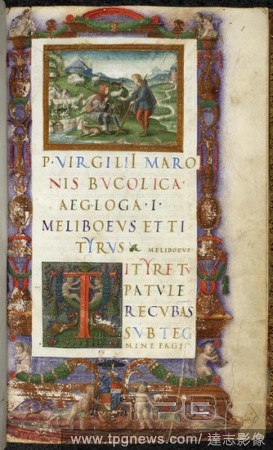 P·VIRGILII MARO
NIS BVCOLICA·
AEGLOGA·I·
MELIBOEVS ET TI
TYRVS
MELIBOEVS
TITYRE TV
PATVLE
RECVBAS
SVB TEG
MINE FAGI
www.tpgnews.com/達志影像